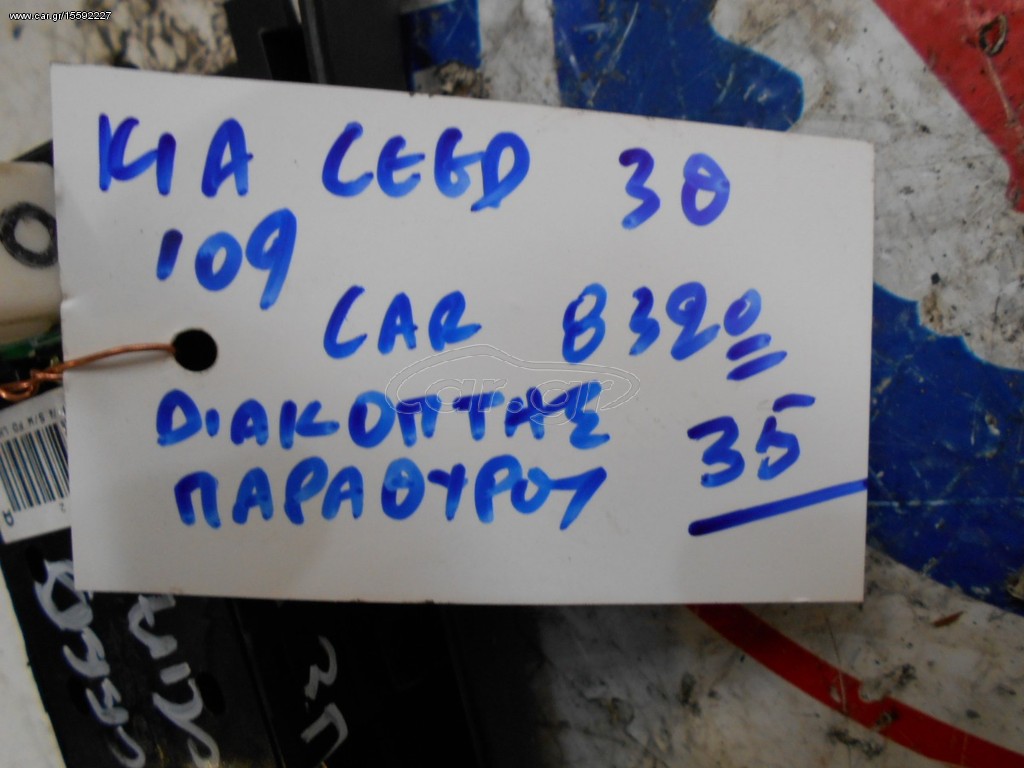 www.car.gr/15592227
KIA CEED 3Θ
'09
CAR 8320
ΔΙΑΚΟΠΤΗΣ
ΠΑΡΑΘΥΡΟΥ 35
car.gr
3.Π